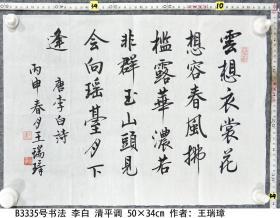 雲想衣裳花
想容春風拂
檻露華濃若
非群玉山頭見
會向瑶臺月下
逢 唐李白詩
丙申春月王瑞璋
B3335号书法 李白 清平调 50×34cm 作者：王瑞璋